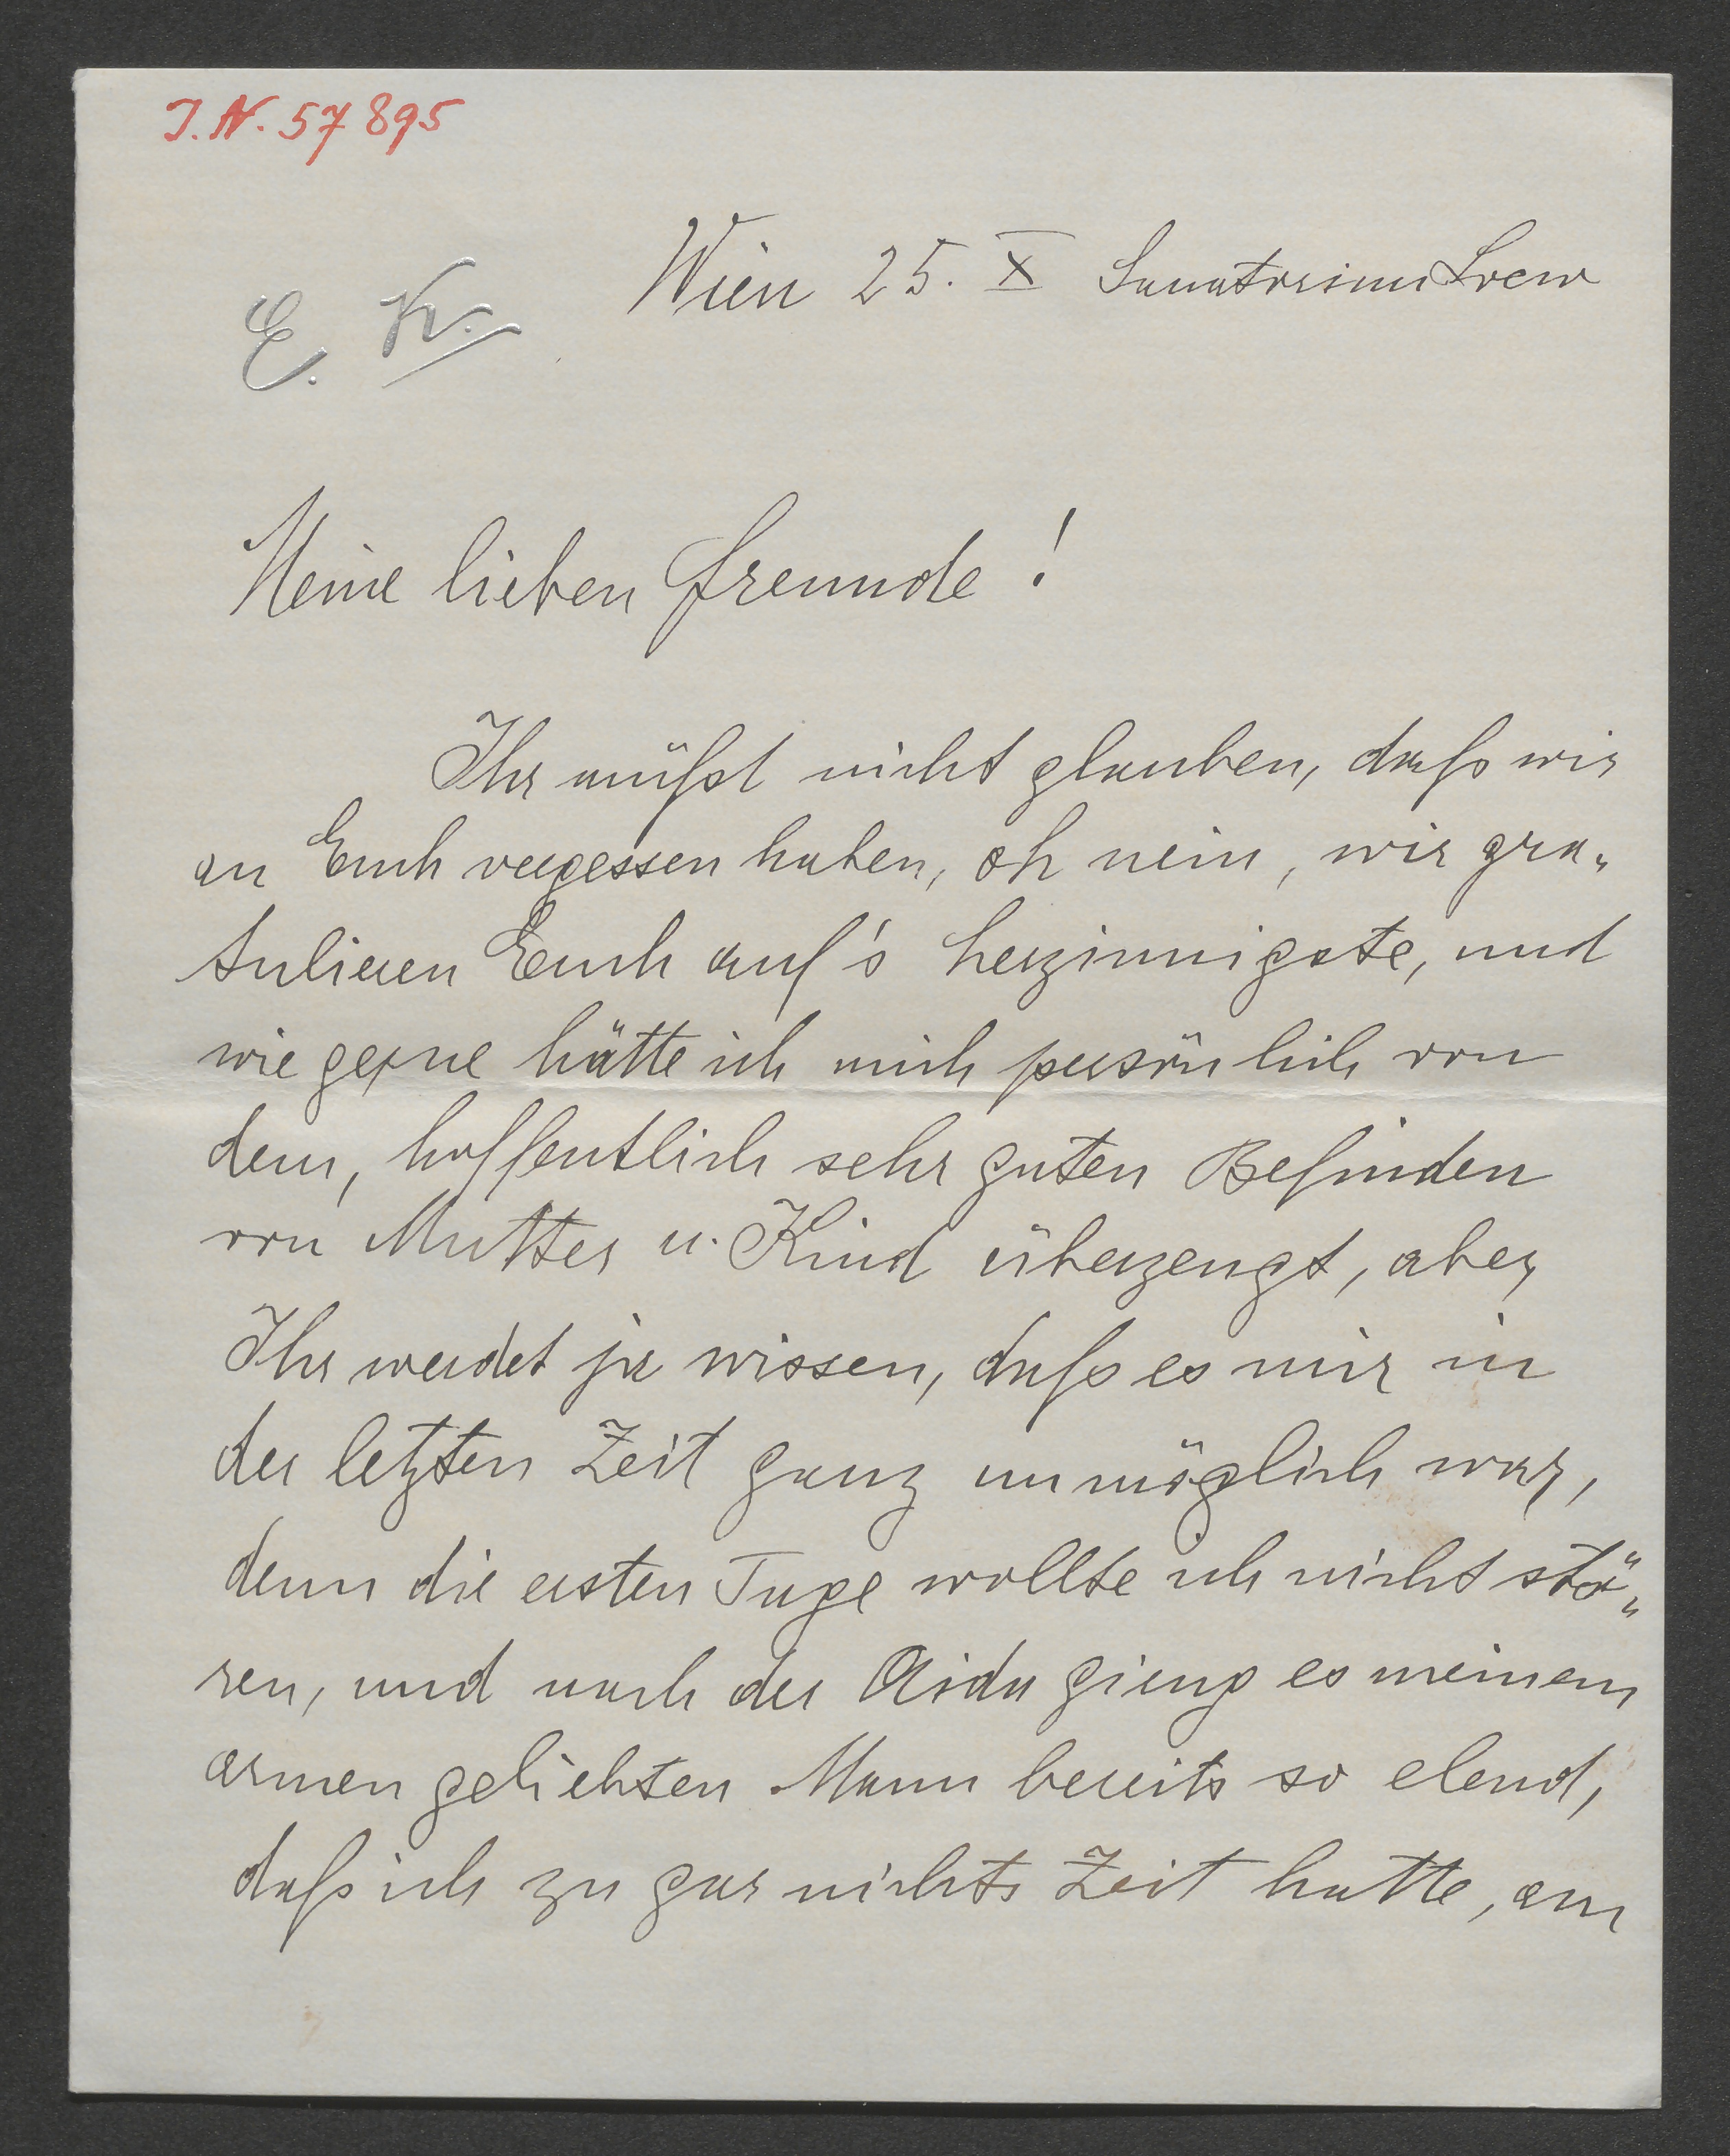 J.N. 57895
Wien 25. X Sanatorium Loew
E. K.
Meine lieben Freunde!
Ihr müßt nicht glauben, daß wir
an Euch vergessen haben, oh nein, wir gra„
tulieren Euch auf's herzinnigste, und
wie gerne hätte ich mich persönlich von
dem, hoffentlich sehr guten Befinden
von Mutter u. Kind überzeugt, aber
Ihr werdet ja wissen, daß es mir in
der letzten Zeit ganz unmöglich war,
denn die ersten Tage wollte ich nicht stö„
ren, und nach der Aida gieng es meinem
armen geliebten Mann bereits so elend,
daß ich zu gar nichts Zeit hatte, am